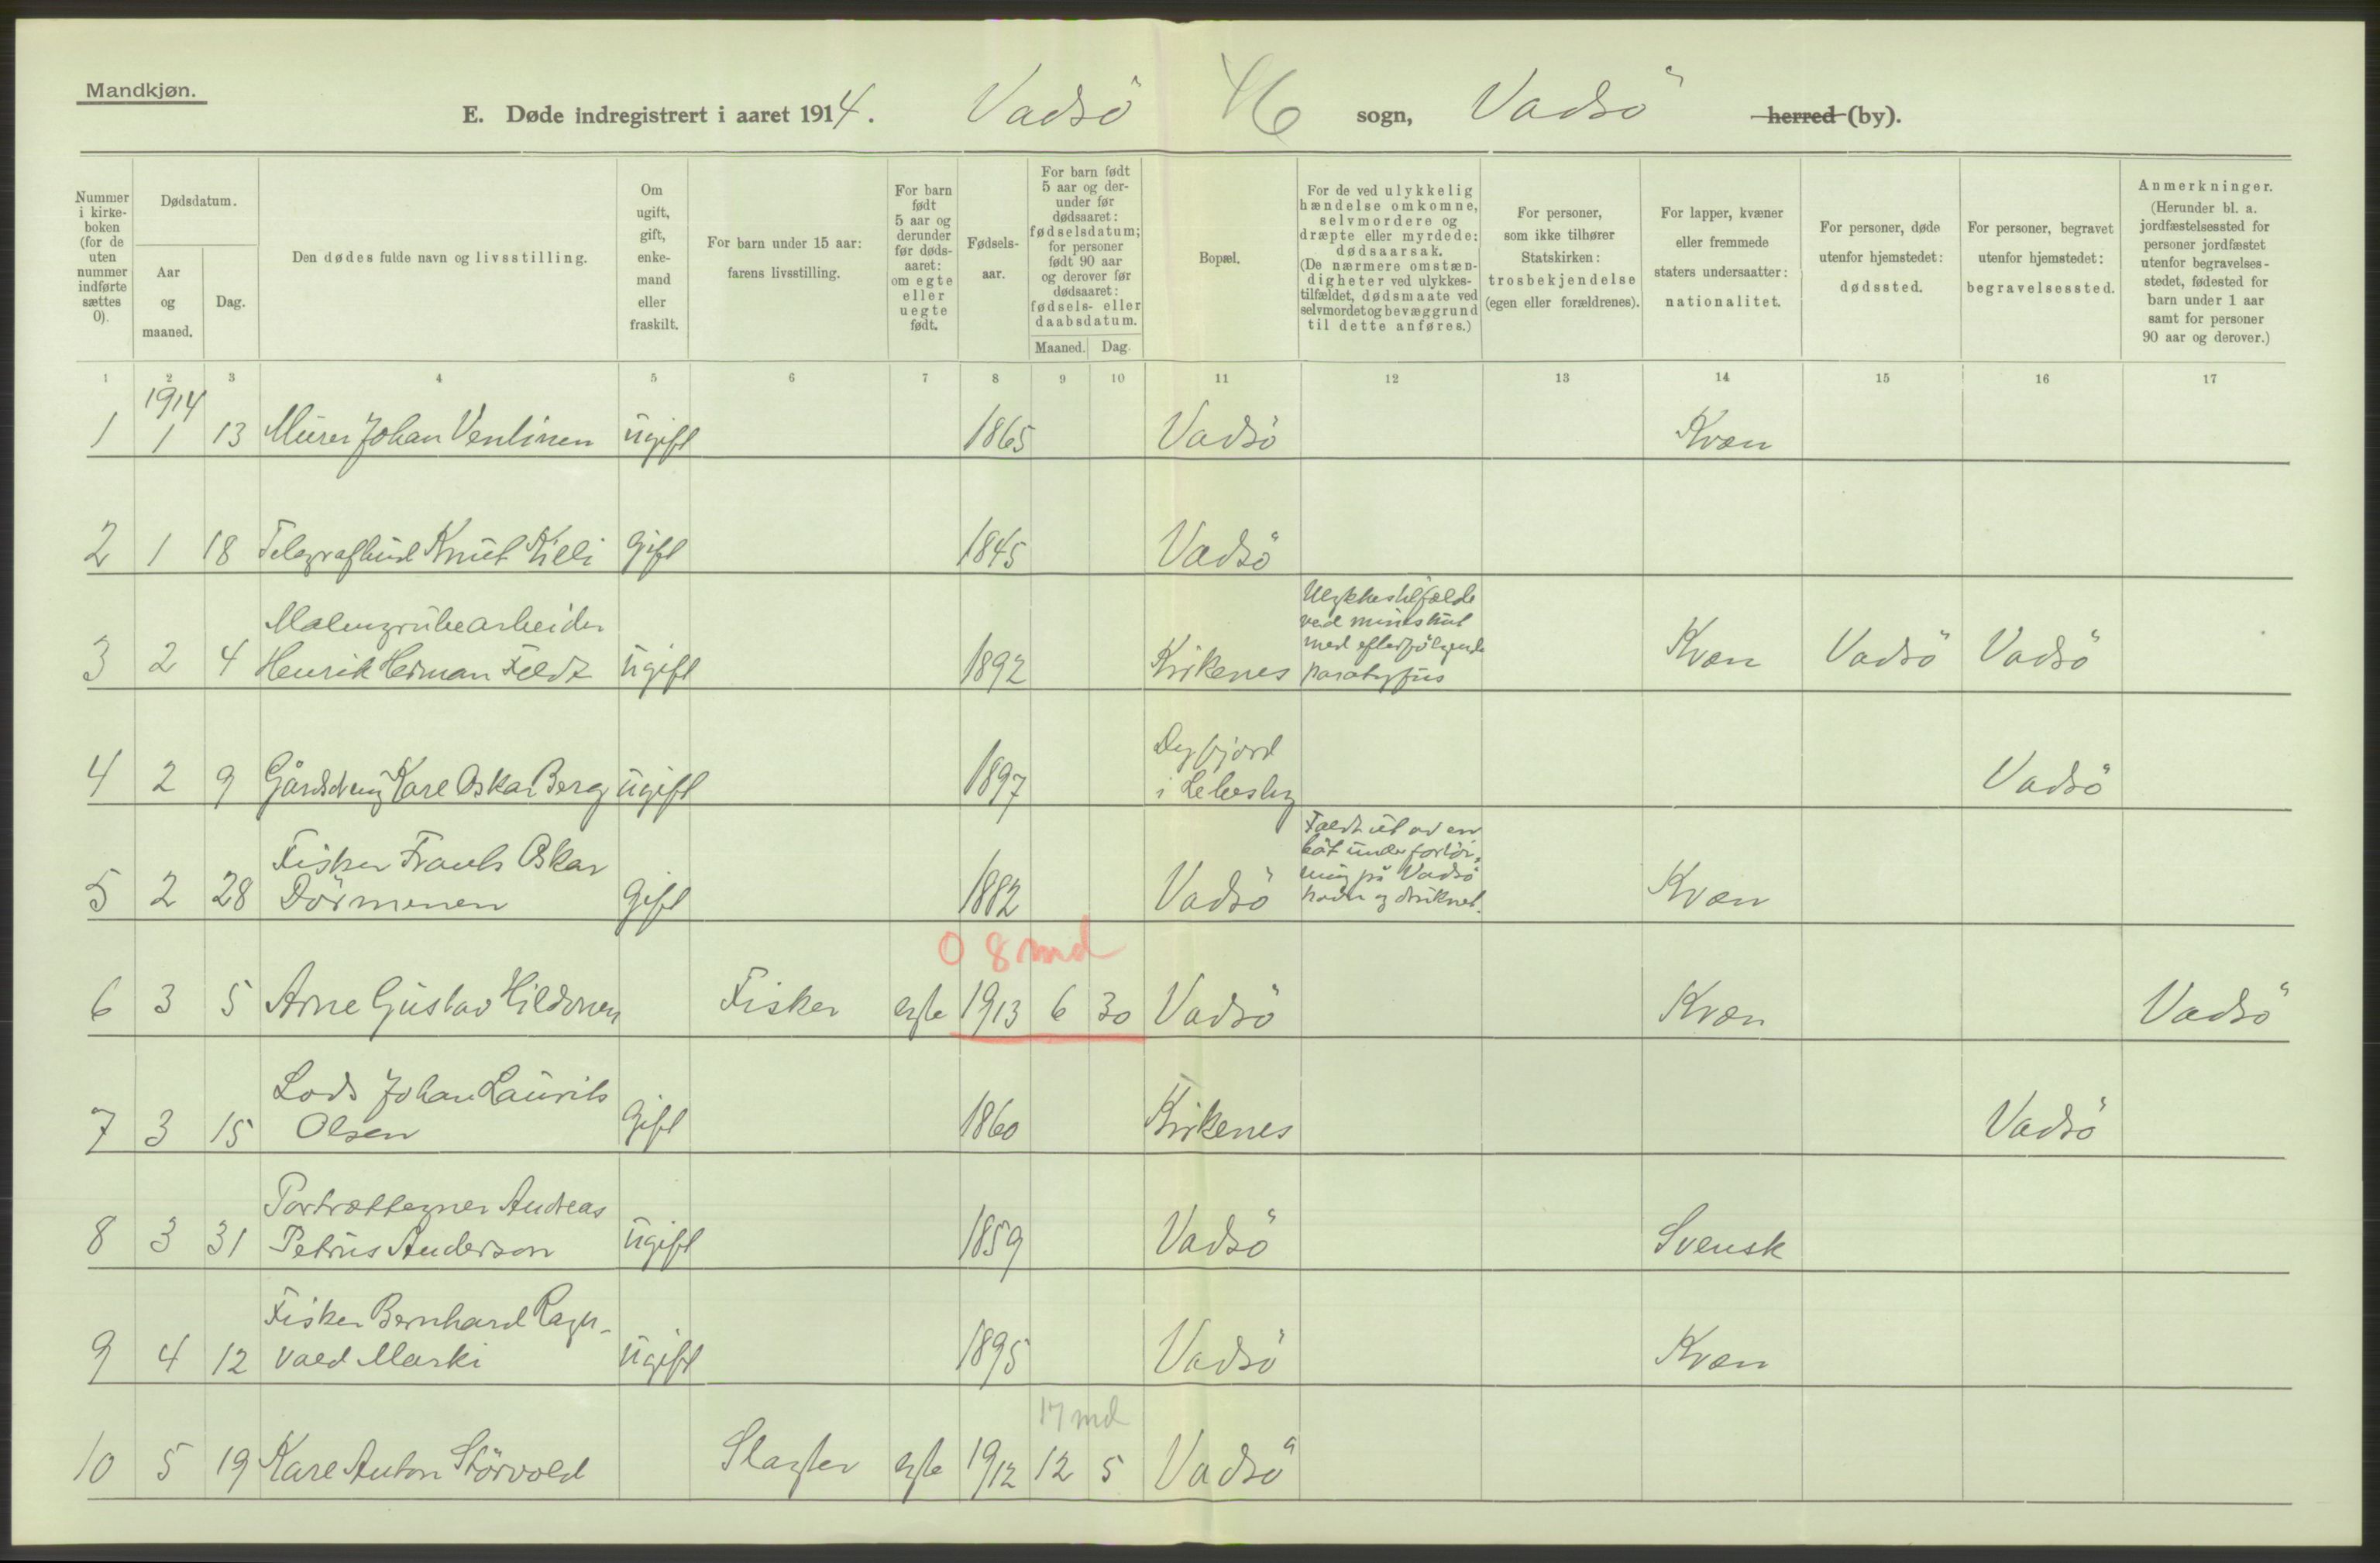 Mandkjøn.
E. Døde indregistrert i aaret 1914. Vadsö 46 sogn, Vadsö herred (by).
Nummer i kirke-boken (for de uten nummer indførte sættes 0).
Dødsdatum.
Aar og maaned.
Dag.
Den dødes fulde navn og livsstilling.
Om ugift, gift, enke-mand eller fraskilt.
For barn under 15 aar: farens livsstilling.
For barn født 5 aar og derunder før døds-aaret: om egte eller uegte født.
Fødsels-aar.
For barn født 5 aar og der-under før dødsaaret: fødselsdatum; for personer født 90 aar og derover før dødsaaret: fødsels- eller daabsdatum.
Maaned. Dag.
Bopæl.
For de ved ulykkelig hændelse omkomne, selvmordere og dræpte eller myrdede: dødsaarsak. (De nærmere omstæn-digheter ved ulykkes-tilfældet, dødsmaate ved selvmordet og bevæggrund til dette anføres.)
For personer, som ikke tilhører Statskirken: trosbekjendelse (egen eller forældrenes).
For lapper, kvæner eller fremmede staters undersaatter: nationalitet.
For personer, døde utenfor hjemstedet: dødssted.
For personer, begravet utenfor hjemstedet: begravelsessted.
Anmerkninger. (Herunder bl. a. jordfæstelsessted for personer jordfæstet utenfor begravelses-stedet, fødested for barn under 1 aar samt for personer 90 aar og derover.)
1 2 3 4 5 6 7 8 9 10 11 12 13 14 15 16 17
1914
1 1 13 Murer Johan Venlinen ugift 1865 Vadsö Kvæn
2 1 18 Knut Killi Gift 1845 Vadsö
Malmgrubearbeider
3 2 4 Henrik Herman Feldt ugift 1892 Kirkenes Kvæn Vadsö Vadsö
Ulykkestilfælde
ved mineskud
med efterfølgende
paratyfus
Dyfjord
4 2 9 Gårdsdreng Karl Oskar Berg ugift 1897 i Lebesby Vadsö
Fisker Frants Oskar
5 2 28 Dörmenen Gift 1882 Vadsö Kvæn
Faldt ut av en
båt under fortöi-
ning på Vadsö
havn og druknet.
0 8 md
6 3 5 Arne Gustav Hildonen Fisker egte 1913 6 30 Vadsö Kvæn Vadsö
Lods Johan Laurits
7 3 15 Olsen Gift 1860 Kirkenes Vadsö
Portrættegner Andreas
8 3 31 Petrus Anderson ugift 1859 Vadsö Svensk
Fisker Bernhard Ragn-
9 4 12 vald Marki ugift 1895 Vadsö Kvæn
17 md
10 5 19 Karl Anton Störvold Slagter egte 1912 12 5 Vadsö